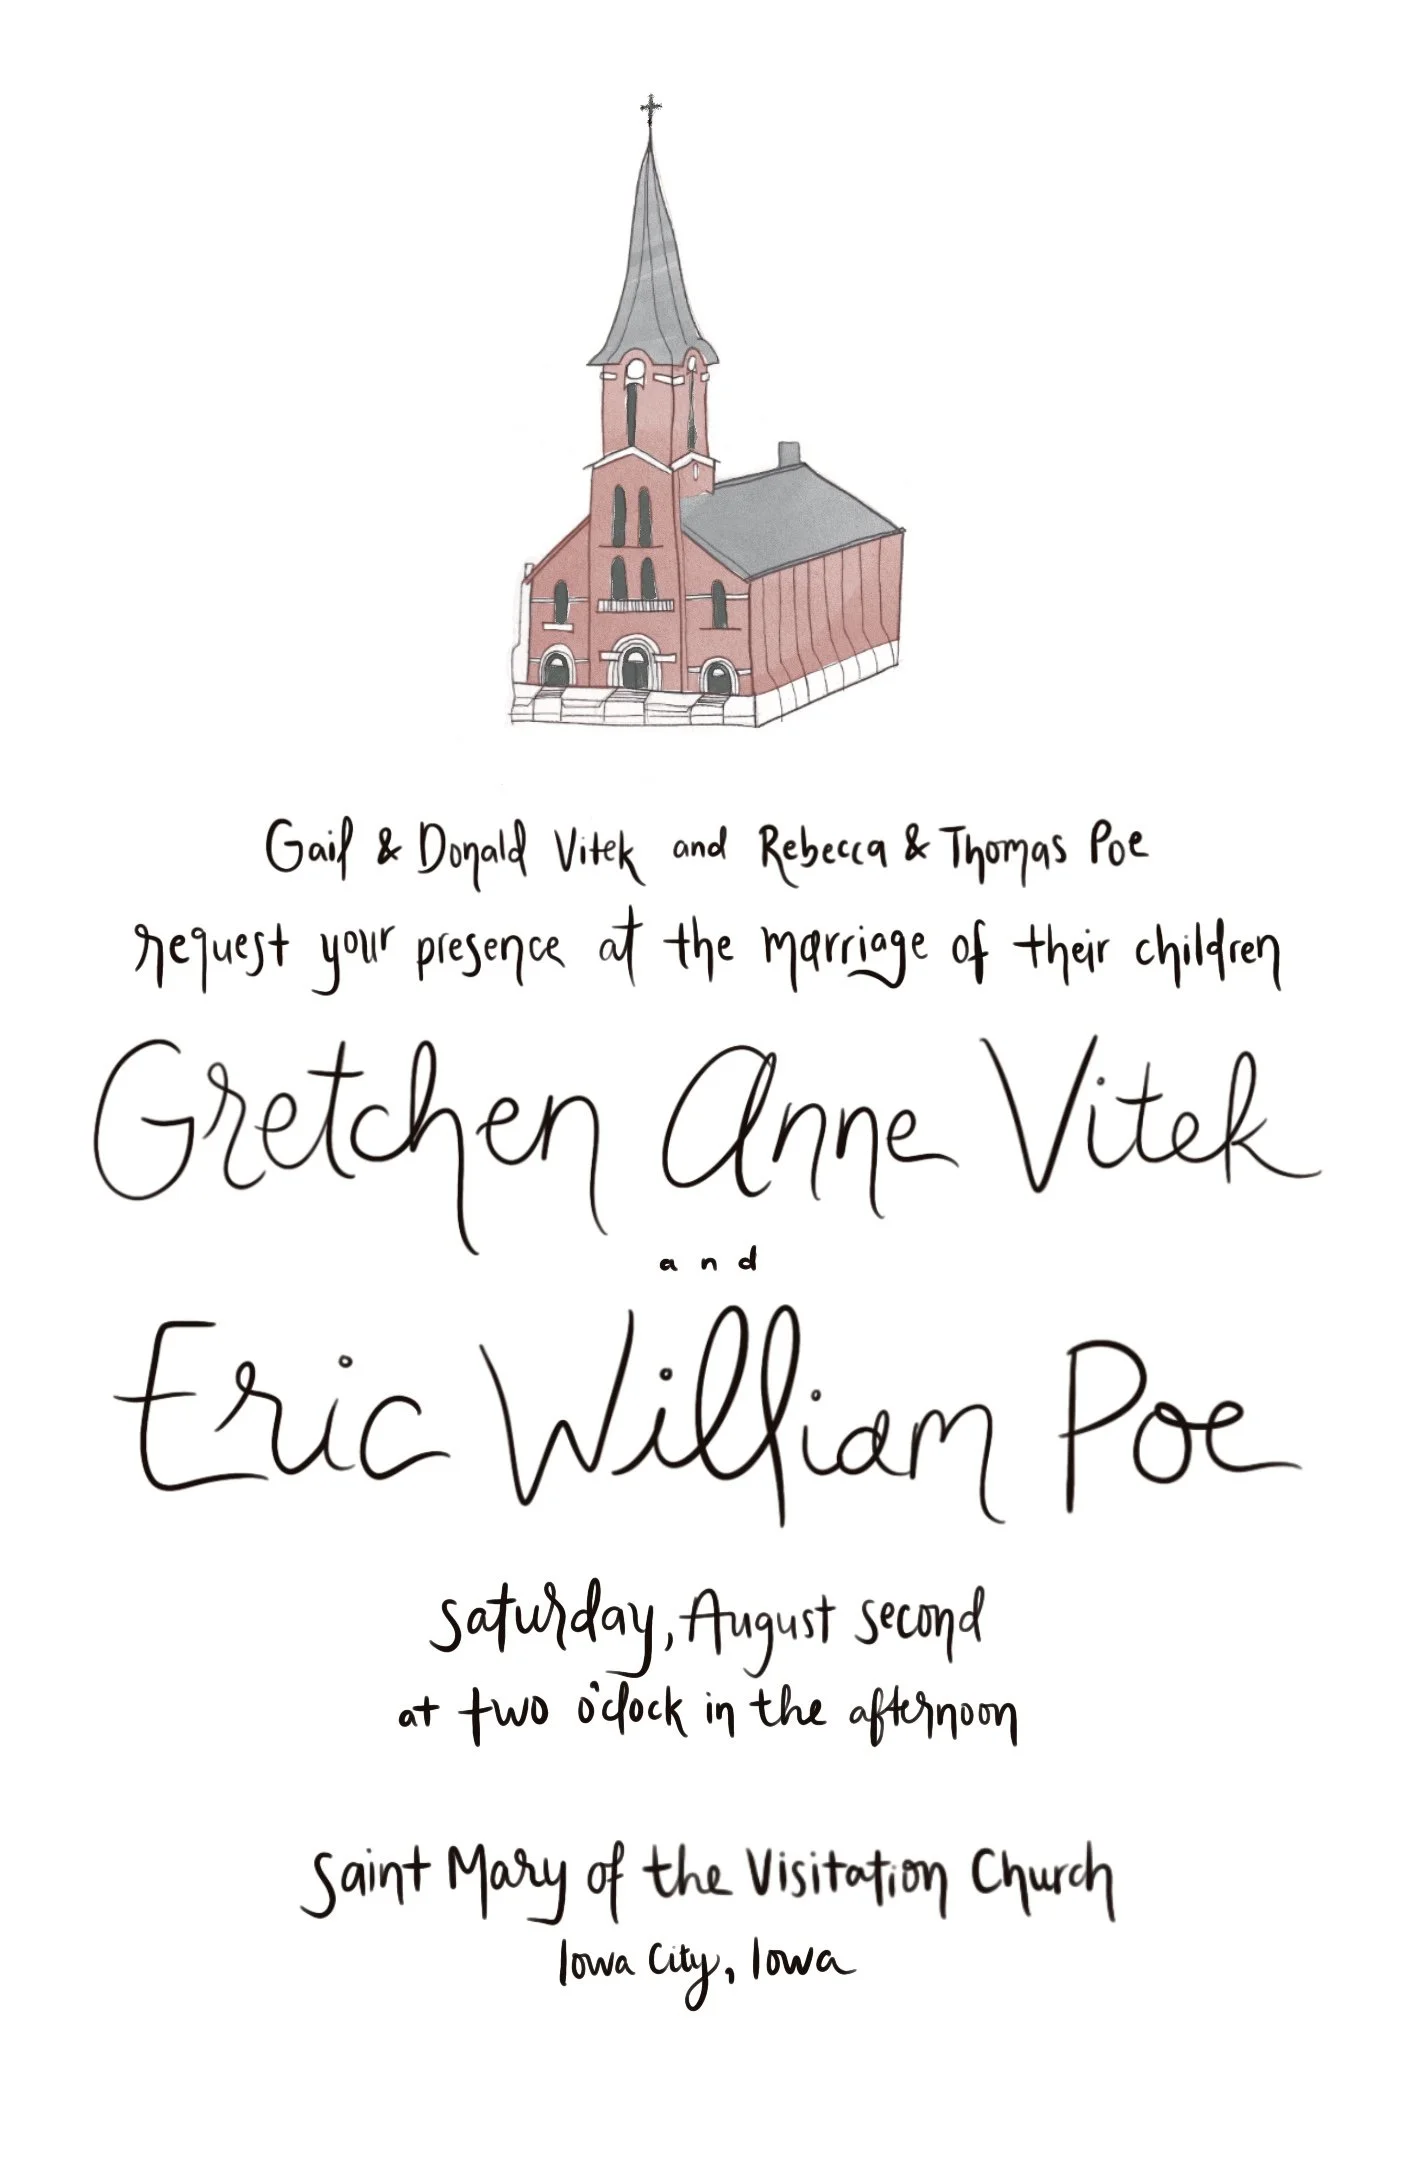 Gail & Donald Vitek and Rebecca & Thomas Poe
request your presence at the marriage of their children
Gretchen Anne Vitek
and
Eric William Poe
saturday, August second
at two o'clock in the afternoon
Saint Mary of the Visitation Church
Iowa City, Iowa